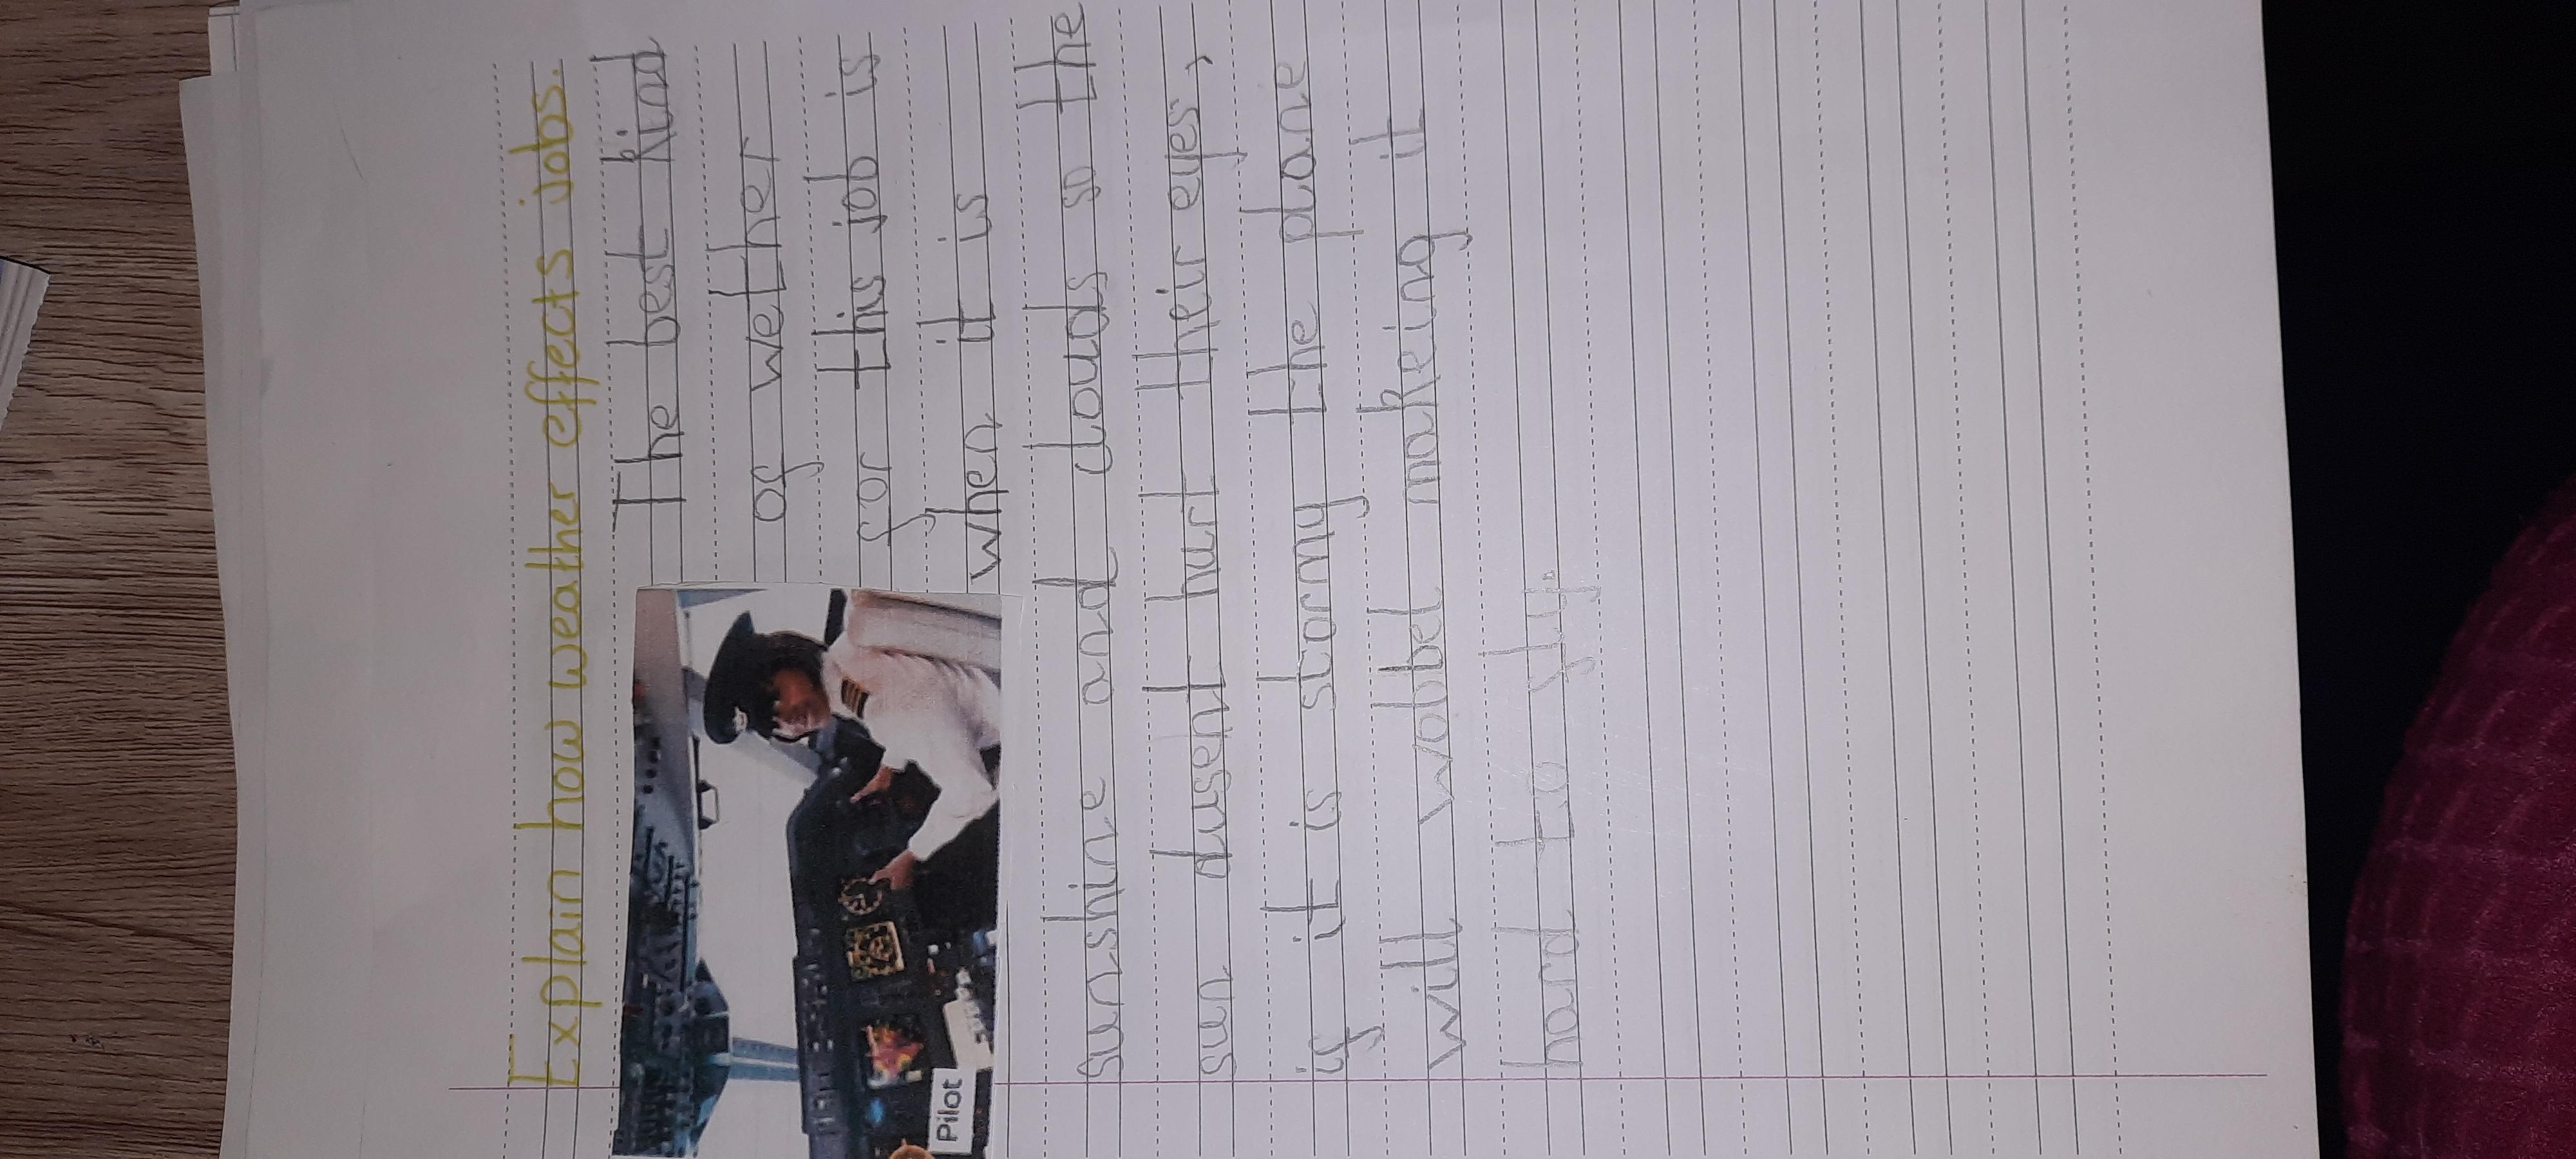 Explain how weather effects jobs.
The best kind
of wether
for this job is
when it is
sunshine and clouds so the
sun dusent hurt their eyes,
if it is stormy the plane
will wobbel makeing it
hard to fly.
Pilot